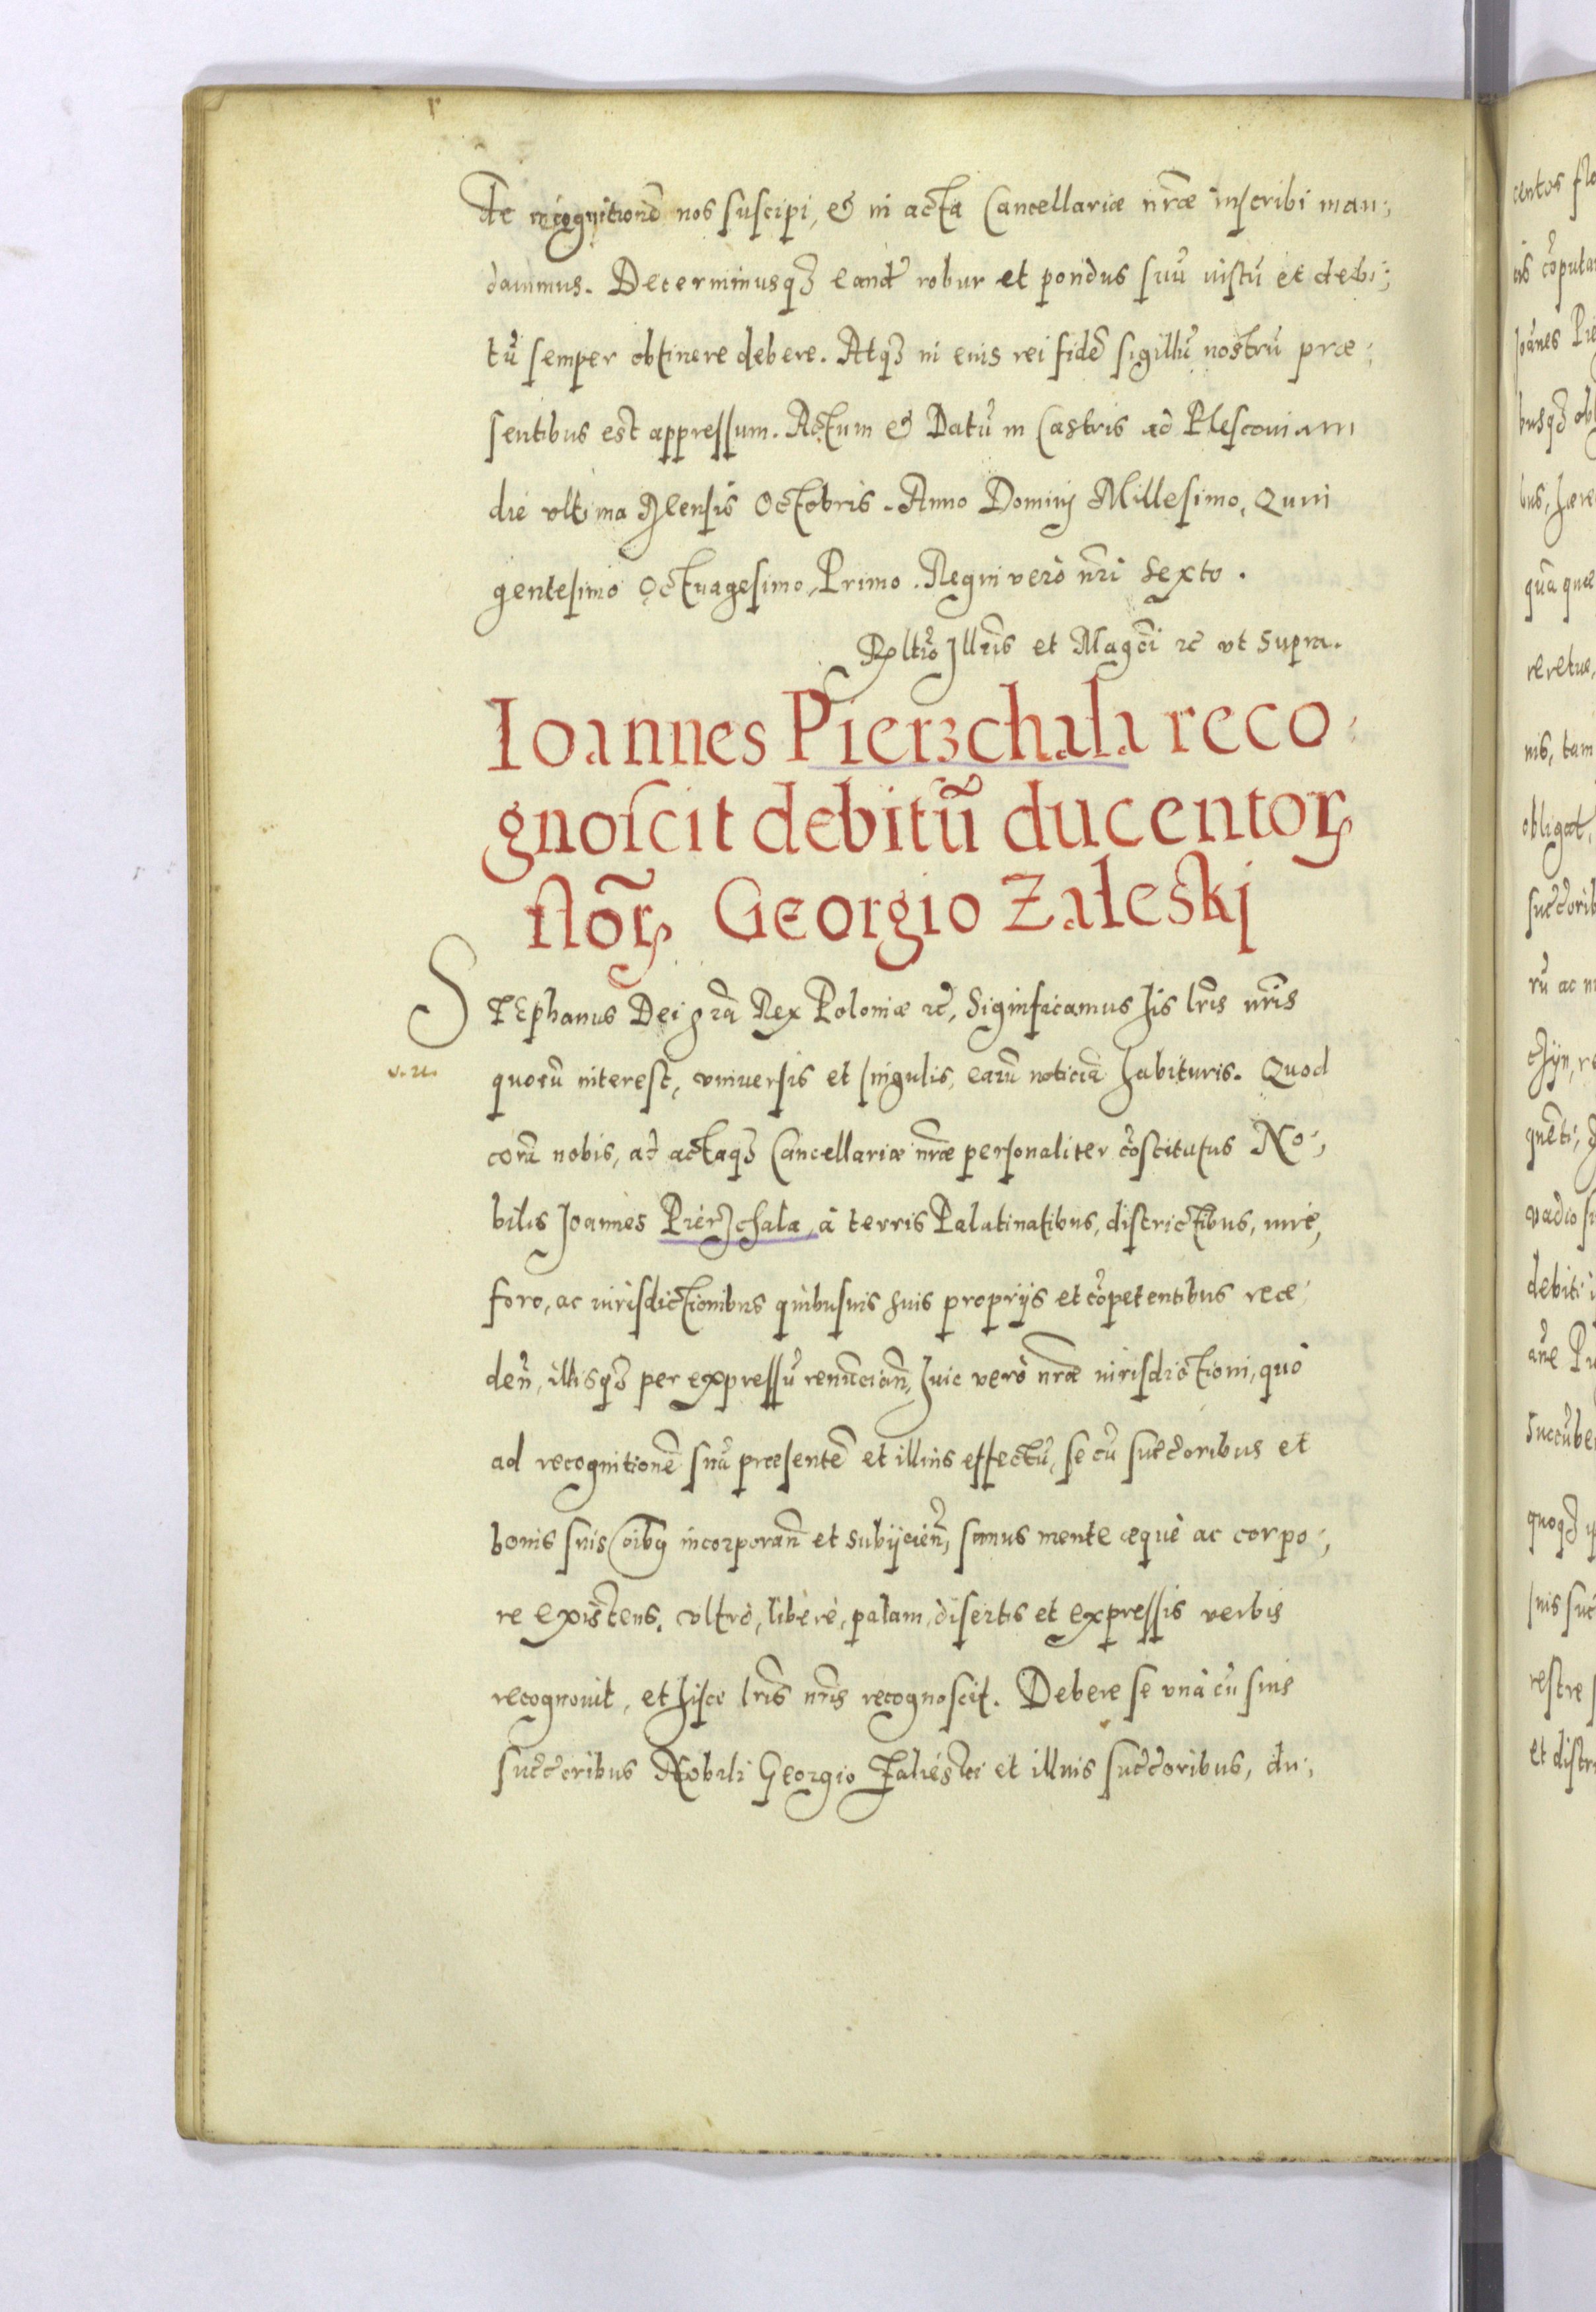 de recognitionẽ nos suscipi, & in acta Cancellariæ nr̃æ inscribi man;
dauimus. Decernimusq3 eand̃ robur et pondus suũ iustũ et debi;
tũ semper obtinere debere. Atq3 in euis rei fidẽ sigillũ nostrũ præ;
sentibus est appressum. Actum & Datũ in Castris ad Plescouiam
die vltima Mensis Octobris. Anno Dominj Millesimo, Quin
gentesimo Octuagesimo, Primo. Regni verò nr̃i Sexto.
Rltiõ Jllr̃is et Magc̃i ꝛc vt supra.
Ioannes Pierzchala reco;
gnoscit debitũ ducentoꝝ
flõꝝ Georgio Zaleskj
STEphanus Dei gr̃a Rex Poloniæ ꝛc, Significamus his lr̃is nr̃is
quorũ interest, vniuersis et singulis, earũ noticiã habituris. Quod
corã nobis, ac actaq3 Cancellariæ nr̃æ personaliter cõstitutus No;
bilis Joannes Pierzchala, à terris Palatinatibus, districtibus, iure,
foro, ac iurisdictionibus quibusuis suis proprijs et cõpetentibus rece;
deñ, illisq3 per expressũ renũcciañ, huic verò nr̃æ iurisdictioni, quo
ad recognitionẽ suã præsentẽ et illius effectũ, se cũ succ̃oribus et
bonis suis oĩbꝰ incorporañ et subijcieñ, sanus mente æquè ac corpo;
re existens, vltrò, liberè, palam, disertis et expressis verbis
recognouit, et hisce lr̃is nr̃is recognoscit. Debere se vnà cũ suis
succ̃oribus Nobili Georgio Zalieski et illius succ̃oribus, du;